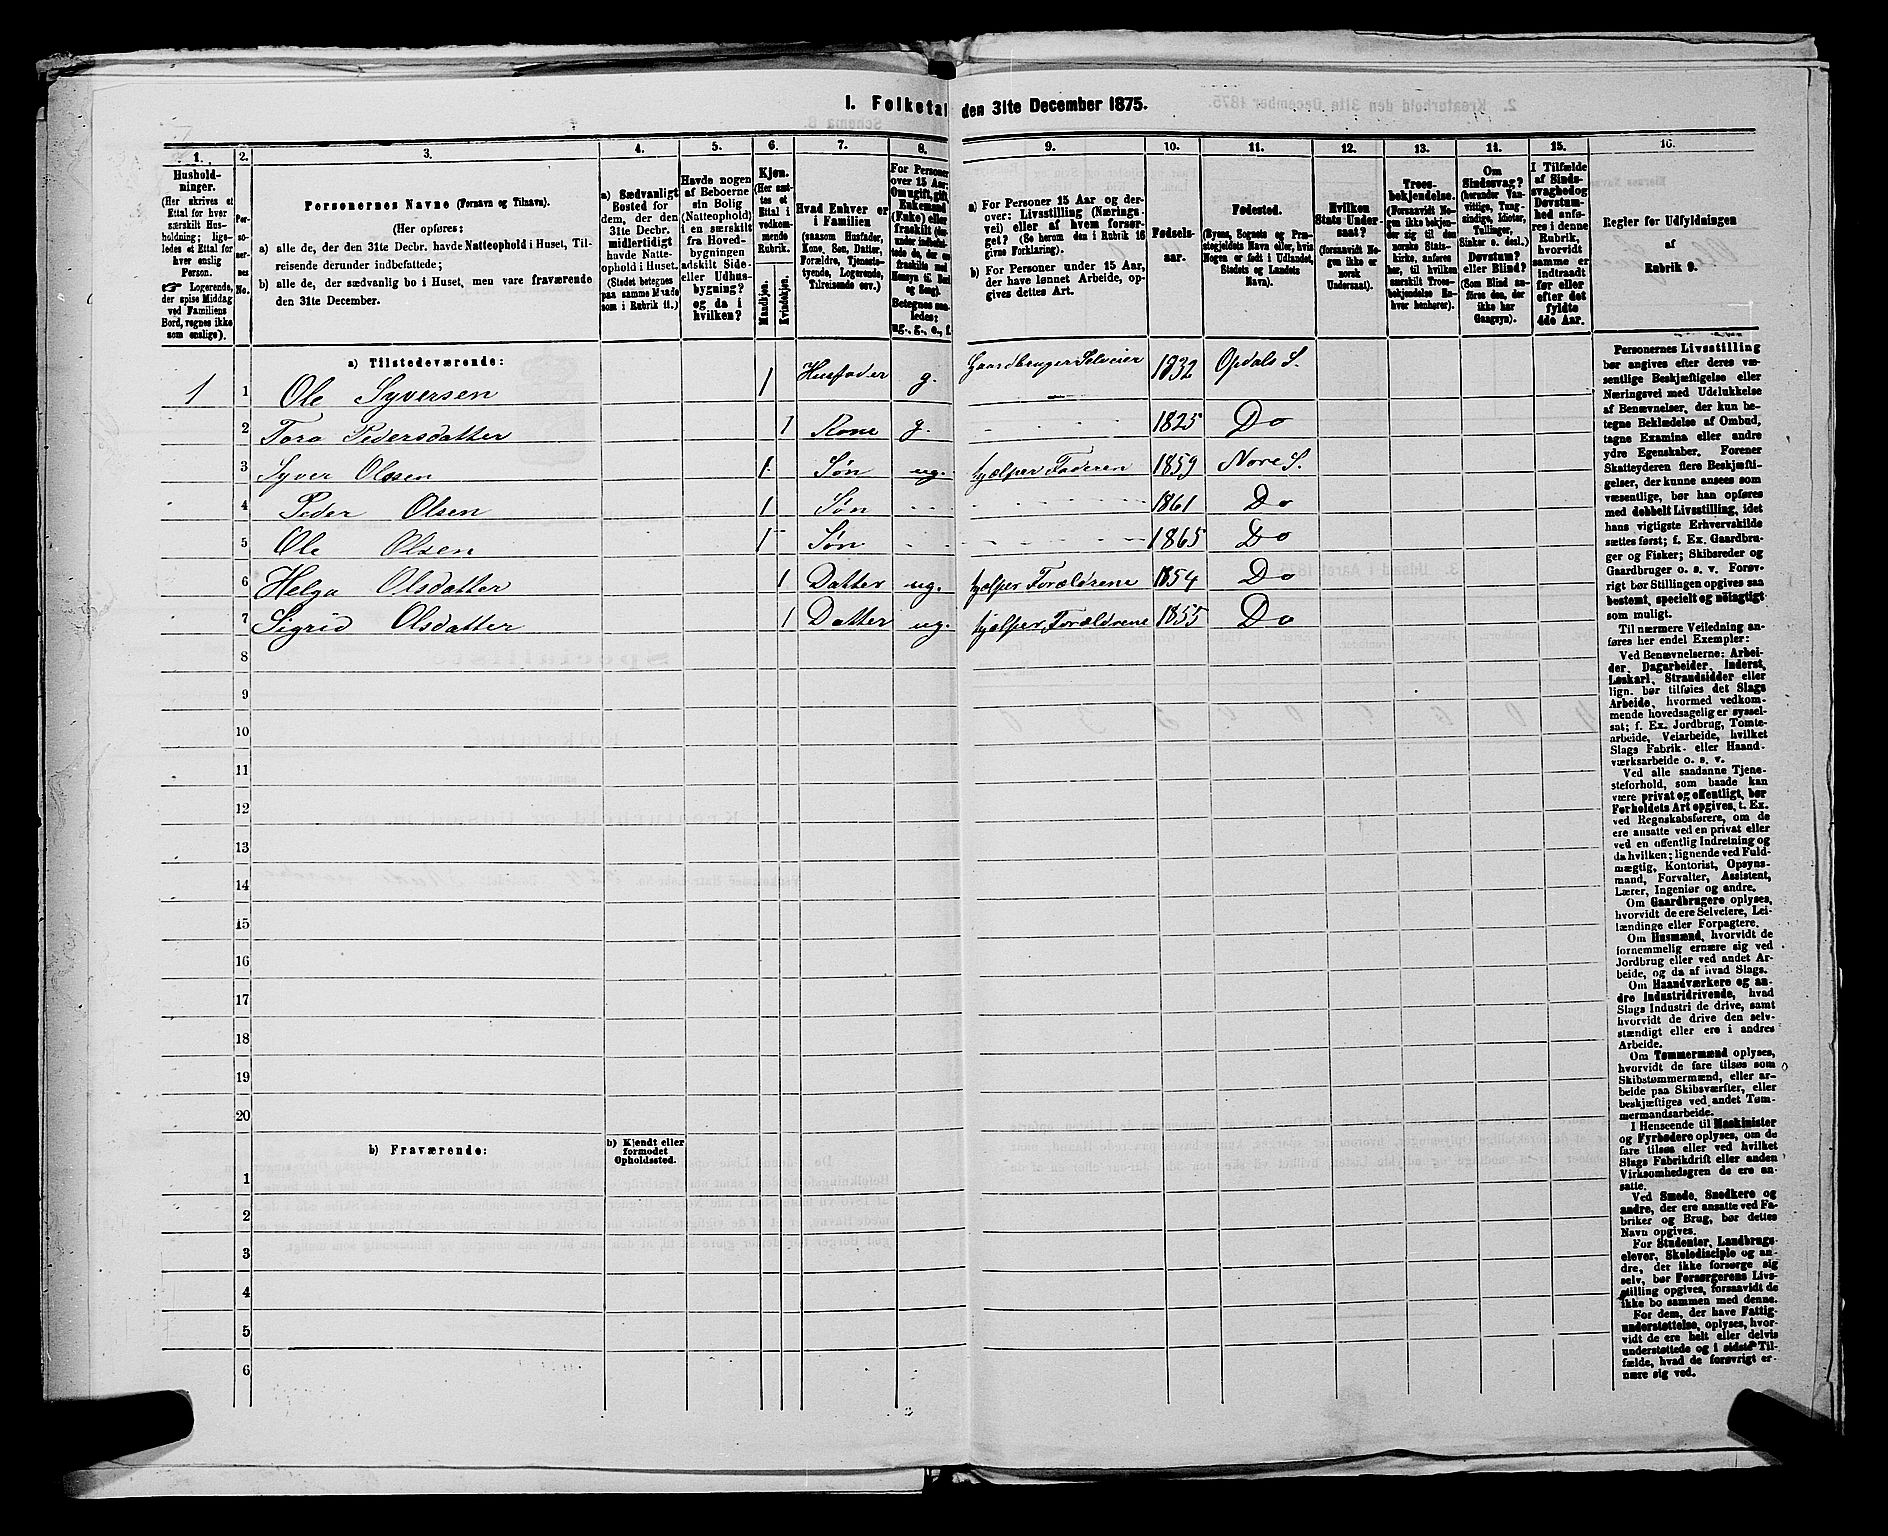 I. Folketal den 31te December 1875.
1.
Husholdninger.
(Her skrives et
Ettal for hver
særskilt Husholdning; ligeledes
et Ettal for
hver enslig
Person.
Logerende,
der spise Middag
ved Familiens
Bord, regnes ikke
som enslige).
2.
Personernes
No.
3.
Personernes Navne (Fornavn og Tilnavn).
(Her opføres:
a) alle de, der den 31te Decbr. havde Natteophold i Huset, Tilreisende
derunder indbefattede;
b) alle de, der sædvanlig bo i Huset, men vare fraværende
den 31te December.
4.
a) Sædvanligt
Bosted for
dem, der den
31te Decbr.
midlertidigt
havde Natteophold
i Huset.
(Stedet betegnes
paa samme Maade
som i Rubrik 11.)
5.
Havde nogen
af Beboerne
sin Bolig
(Natteophold)
i en særskilt
fra Hovedbygningen
adskilt Side-
eller Udhusbygning?
og da i
hvilken?
6.
Kjøn.
(Her sættes
et
Ettal i
vedkommende
Rubrik.
Mandkjøn.
Kvindekjøn.
7.
Hvad Enhver er
i Familien
(saasom Husfader,
Kone, Søn, Datter,
Forældre, Tjenestetyende,
Logerende,
Tilreisende osv.)
8.
For Personer
over 15 Aar:
Om ugift, gift,
Enkemand
(Enke) eller
fraskilt
Betegnes saaledes:
ug., g., e., f.
9.
a) For Personer 15 Aar og derover:
Livsstilling (Næringsvei)
eller af hvem forsørget?
(Se herom den i Rubrik 16
givne Forklaring).
b) For Personer under 15 Aar,
der have lønnet Arbeide, opgives
dettes Art.
10.
Fødselsaar.
11.
Fødested.
(Byens, Sognets eller Præstegjeldets
Navn eller, hvis
Nogen er født i Udlandet,
Stedets og Landets
Navn).
12.
Hvilken
Stats Undersaat?
(forsaavidt Nogen
ikke er
norsk
Undersaat).
13.
Troesbekjendelse.
(Forsaavidt Nogen
ikke bekjender
sig til den
norske Statskirke,
anføres
her, til hvilken
særskilt Troesbekjendelse
Enhver
henhører).
14.
Om
Sindssvag?
(herunder Vanvittige,
Tungsindige,
Idioter,
Tullinger,
Sinker o. desl.)
Døvstum?
eller Blind?
(Som Blind anføres
den, der
ikke har
Gangsyn).
15.
I Tilfælde
af Sindssvaghed og
Døvstumhed
anføres
i denne
Rubrik,
hvorvidt
samme er
indtraadt
før eller
efter det
fyldte
4de Aar.
16.
Regler for Udfyldningen
af
Rubrik 9.
a) Tilstedeværende:
1 1 Ole Syversen 1 Husfader g. Gaardbruger Selveier 1832 Opdals S.
2 Toro Pedersdatter 1 Kone g. 1825 Do
3 Syver Olssen 1 Søn ug. hjelper Faderen 1859 Nore S.
4 Peder Olsen 1 Søn 1861 Do
5 Ole Olsen 1 Søn 1865 Do
6 Helga Olsdatter 1 Datter ug. hjælper Forældrene 1854 Do
7 Sigrid Olsdatter 1 Datter ug. hjælper Forældrene 1855 Do
8
9
10
11
12
13
14
15
16
17
18
19
20
b) Fraværende:
b) Kjendt eller
formodet
Opholdssted.
1
2
3
4
5
6
Personernes Livsstilling
bør angives efter deres væsentlige
Beskjæftigelse eller
Næringsvei med Udelukkelse
af Benævnelser, der kun betegne
Beklædelse af Ombud,
tagne Examina eller andre
ydre Egenskaber. Forener
Skatteyderen flere Beskjæftigelser,
der kunne ansees som
væsentlige, bør han opføres
med dobbelt Livsstilling, idet
hans vigtigste Erhvervskilde
sættes først; f. Ex. Gaardbruger
og Fisker; Skibsreder og
Gaardbruger o. s. v. Forøvrigt
bør Stillingen opgives saa
bestemt, specielt og nöiagtigt
som muligt.
Til nærmere Veiledning anføres
her endel Exempler:
Ved Benævnelserne: Arbeider,
Dagarbeider, Inderst,
Løskarl, Strandsidder eller
lign. bør tilføies det Slags
Arbeide, hvormed vedkommende
hovedsagelig er sysselsat;
f. Ex. Jordbrug, Tomtearbeide,
Veiarbeide, hvilket
Slags Fabrik- eller Haandværksarbeide
o. s. v.
Ved alle saadanne Tjenesteforhold,
som baade kan
være privat og offentligt, bør
Forholdets Art opgives, t. Ex.
ved Regnskabsførere, om de
ere ansatte ved en privat eller
ved en offentlig Indretning og
da hvilken; lignende ved Fuldmægtig,
Kontorist, Opsynsmand,
Forvalter, Assistent,
Lærer, Ingeniør og andre.
Om Gaardbrugere oplyses,
hvorvidt de ere Selveiere, Leilændinge
eller Forpagtere.
Om Husmænd, hvorvidt de
fornemmelig ernære sig ved
Jordbrug eller ved andet Arbeide,
og da af hvad Slags.
Om Haandværkere og andre
Industridrivende, hvad
Slags Industri de drive, samt
hvorvidt de drive den selvstændigt
eller ere i andres
Arbeide.
Om Tømmermænd oplyses,
hvorvidt de fare tilsøs som
Skibstømmermænd, eller arbeide
paa Skibsværfter, eller
beskjæftiges ved andet Tømmermandsarbeide.
I Henseende til Maskinister
og Fyrbødere oplyses, om de
fare tilsøs eller ved hvilket
Slags Fabrikdrift eller anden
Virksomhedsgren de ere ansatte.
Ved Smede, Snedkere og
andre, der ere ansatte ved Fabriker
og Brug, bør dettes
Navn opgives.
For Studenter, Landbrugselever,
Skoledisciple og andre,
der ikke forsørge sig
selv, bør Forsørgerens Livsstilling
opgives, forsaavidt de
ikke bo sammen med denne.
For dem, der have Fattigunderstøttelse,
oplyses, hvorvidt
de ere helt eller delvis
understøttede og i sidste Tilfælde,
hvad de forøvrigt ernære
sig ved.